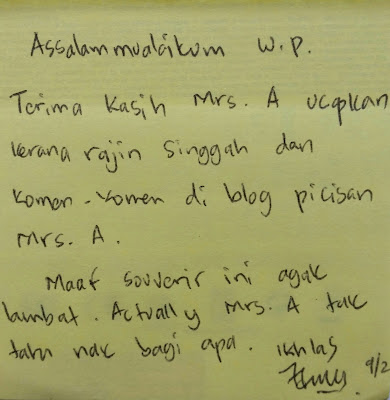 Assalammualaikum W.P.
Terima Kasih Mrs. A ucapkan
kerana rajin singgah dan
komen-komen di blog picisan
Mrs. A.
Maaf souvenir ini agak
lambat. Actually Mrs. A tak
tahu nak bagi apa. Ikhlas
9/2